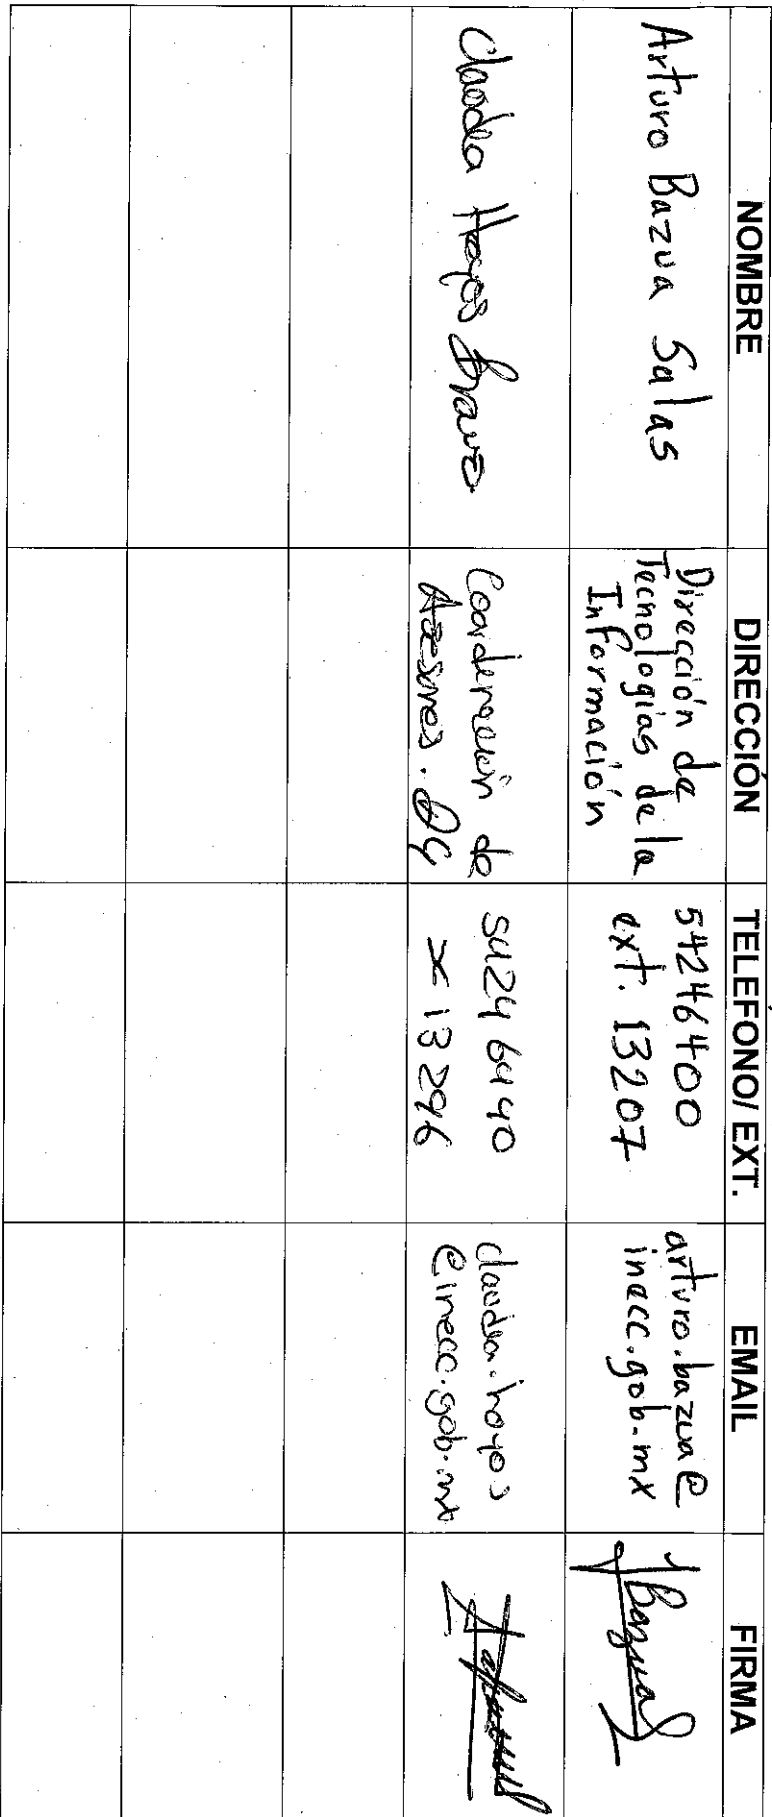 NOMBRE DIRECCIÓN TELEFONO/ EXT. EMAIL FIRMA
Arturo Bazua Salas
Dirección de
Tecnologías de la
Información
54246400
ext. 13207
arturo.bazua@
inecc.gob.mx
Bazua
Claudia Hoyos Bravo
Coordinación de
Asesores. DG
5424 6440
x 13296
claudia.hoyos
@inecc.gob.mx